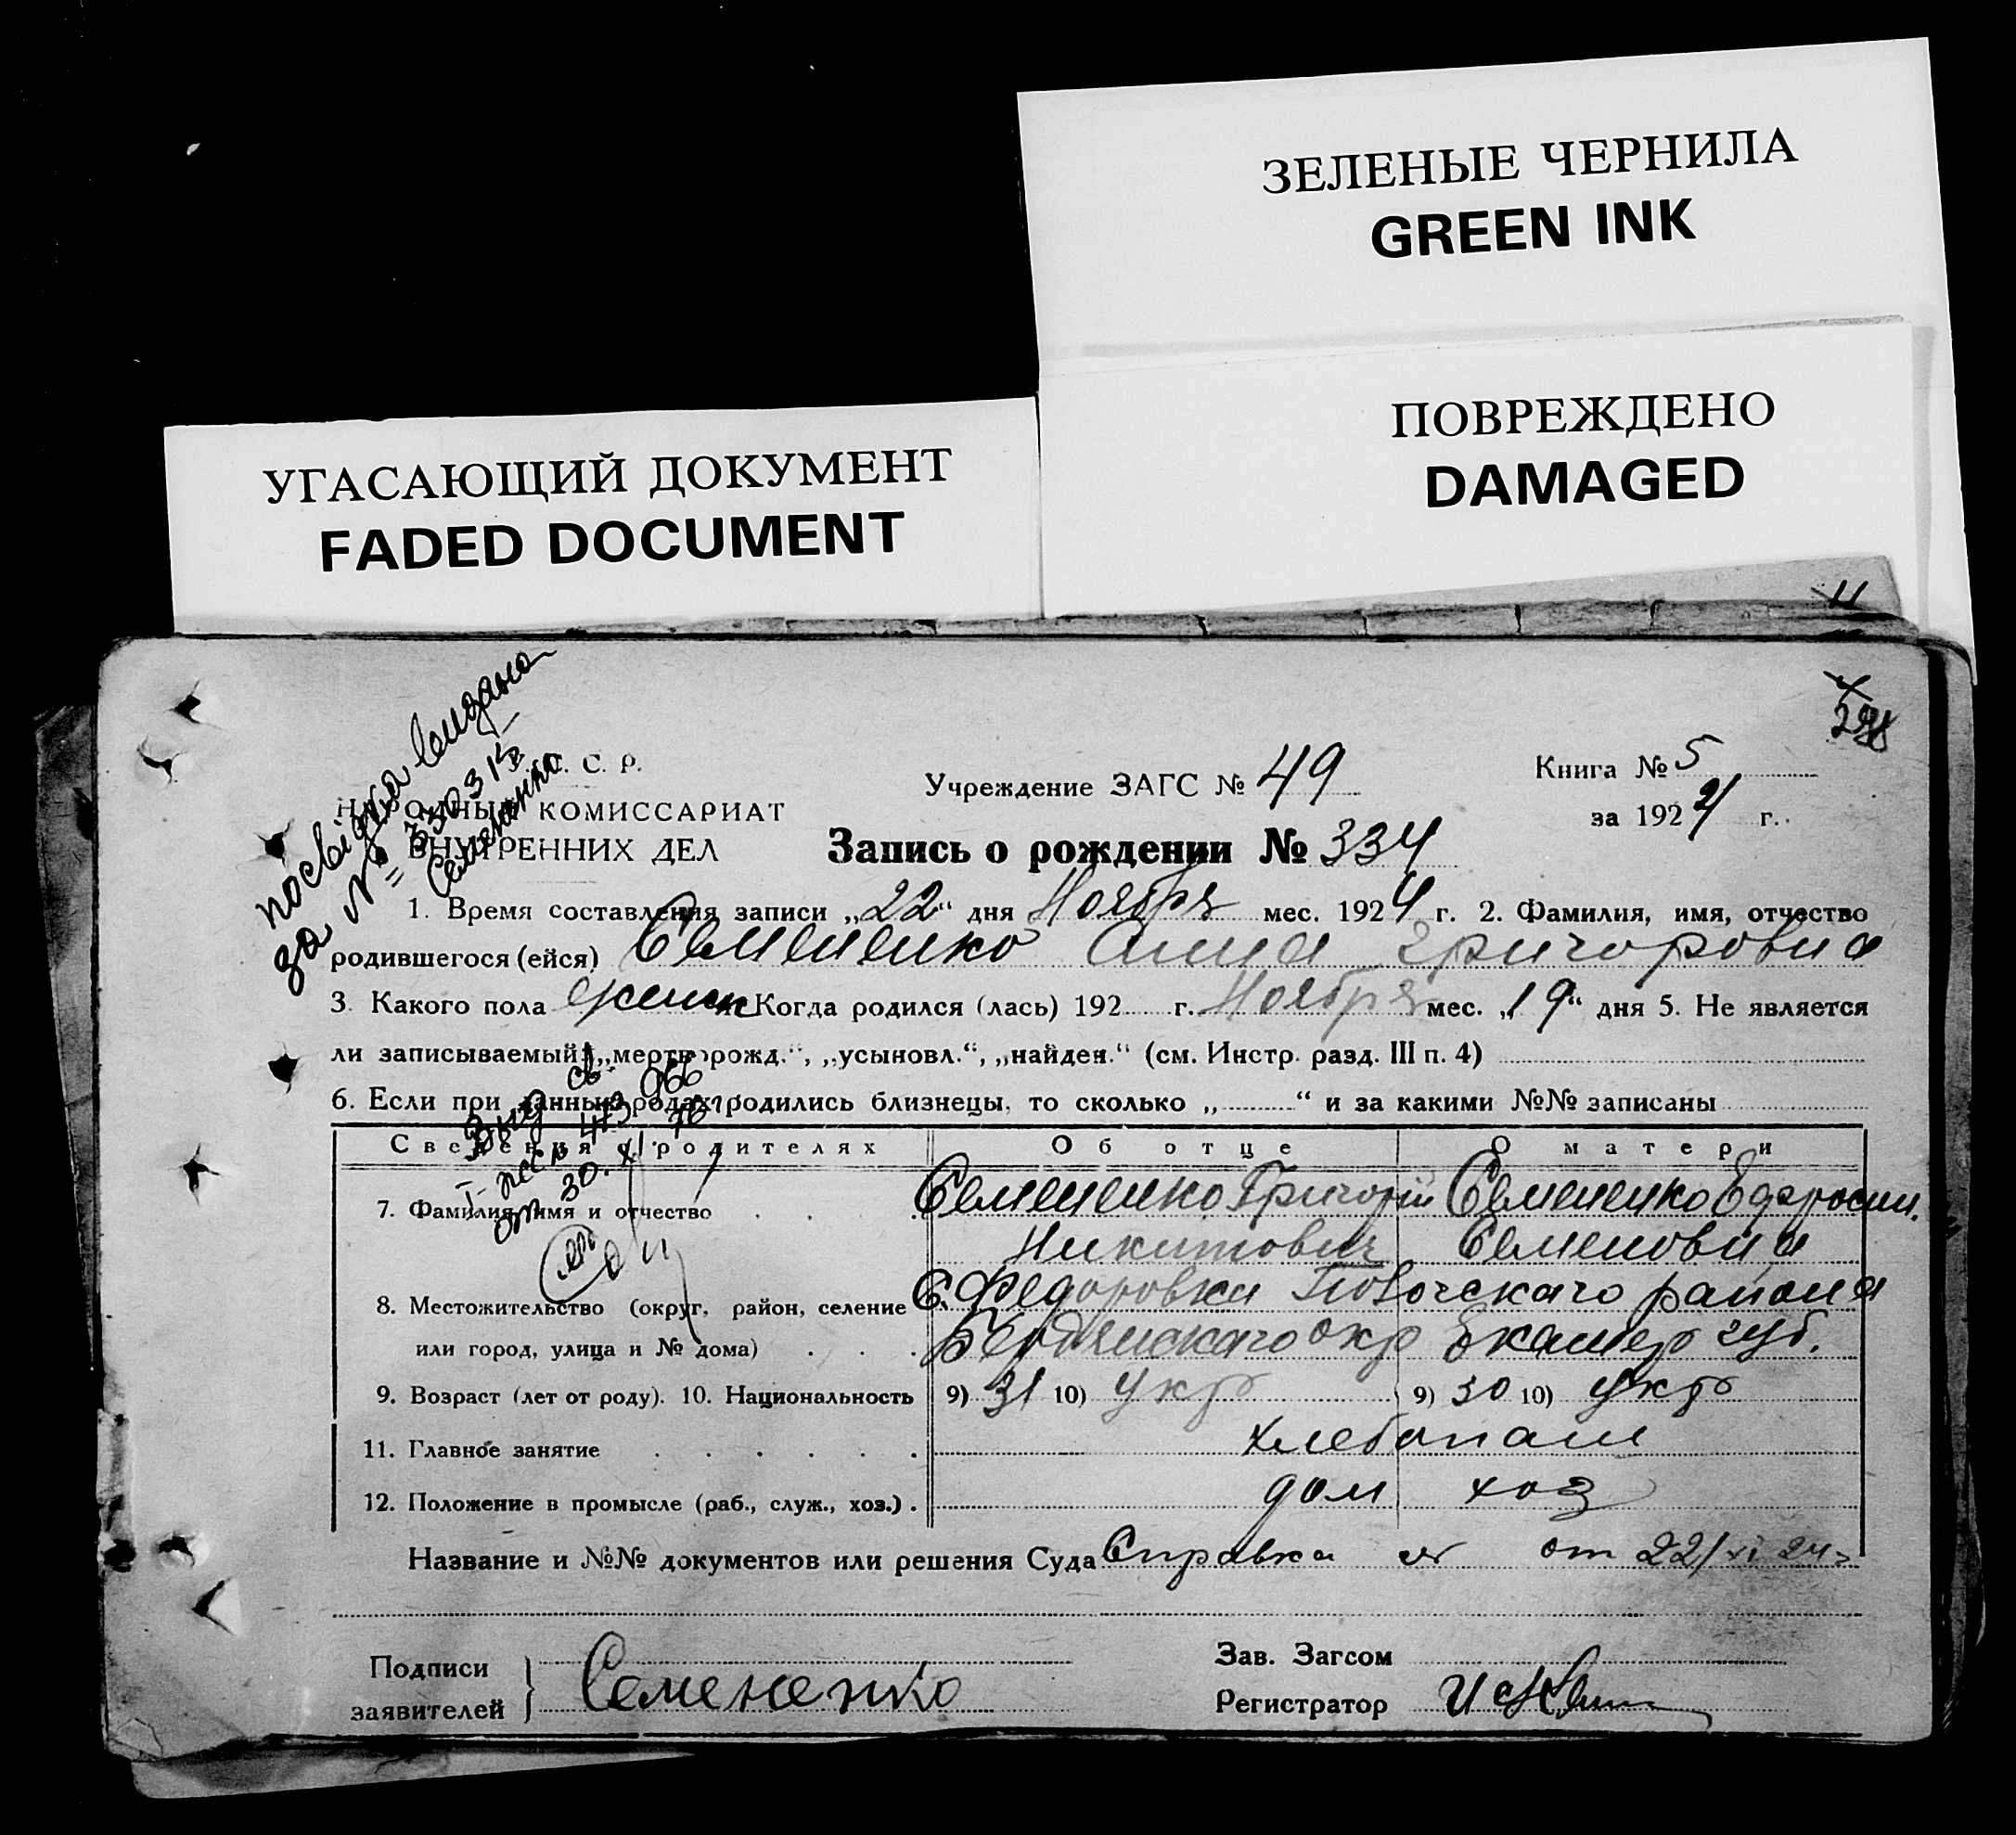 ЗЕЛЕНЫЕ ЧЕРНИЛА
GREEN INK
ПОВРЕЖДЕНО
DAMAGED
УГАСАЮЩИЙ ДОКУМЕНТ
FADED DOCUMENT
11
посвідка видана
за №
Семененко
С. С. Р.
НАРОДНЫЙ КОМИССАРИАТ
ВНУТРЕННИХ ДЕЛ
Учреждение ЗАГС № 49
Книга № 5
за 1924 г.
Запись о рождении № 334
1. Время составления записи „22“ дня Ноября мес. 1924 г. 2. Фамилия, имя, отчество
родившегося (ейся) Семененко Анна Григоровна
3. Какого пола женск Когда родился (лась) 192 г. Ноября мес. „19“ дня 5. Не является
ли записываемый „мертворожд.“, „усыновл.“, „найден.“ (см. Инстр. разд. III п. 4)
6. Если при данных родах родились близнецы, то сколько „ “ и за какими №№ записаны
св.
473 966
от 30. XI 76
Сведения о родителях Об отце О матери
7. Фамилия, имя и отчество Семененко Григорій Семененко Ефросин.
Никитович Семеновна
8. Местожительство (округ, район, селение С. Федоровка района
или город, улица и № дома) Бердянскаго окр Екатер губ.
9. Возраст (лет от роду). 10. Национальность 9) 31 10) укр 9) 30 10) укр
11. Главное занятие хлебопаш
12. Положение в промысле (раб., служ., хоз.) дом хоз
Название и №№ документов или решения Суда Справка от 22/XI 24
Подписи
заявителей Семененко
Зав. Загсом
Регистратор